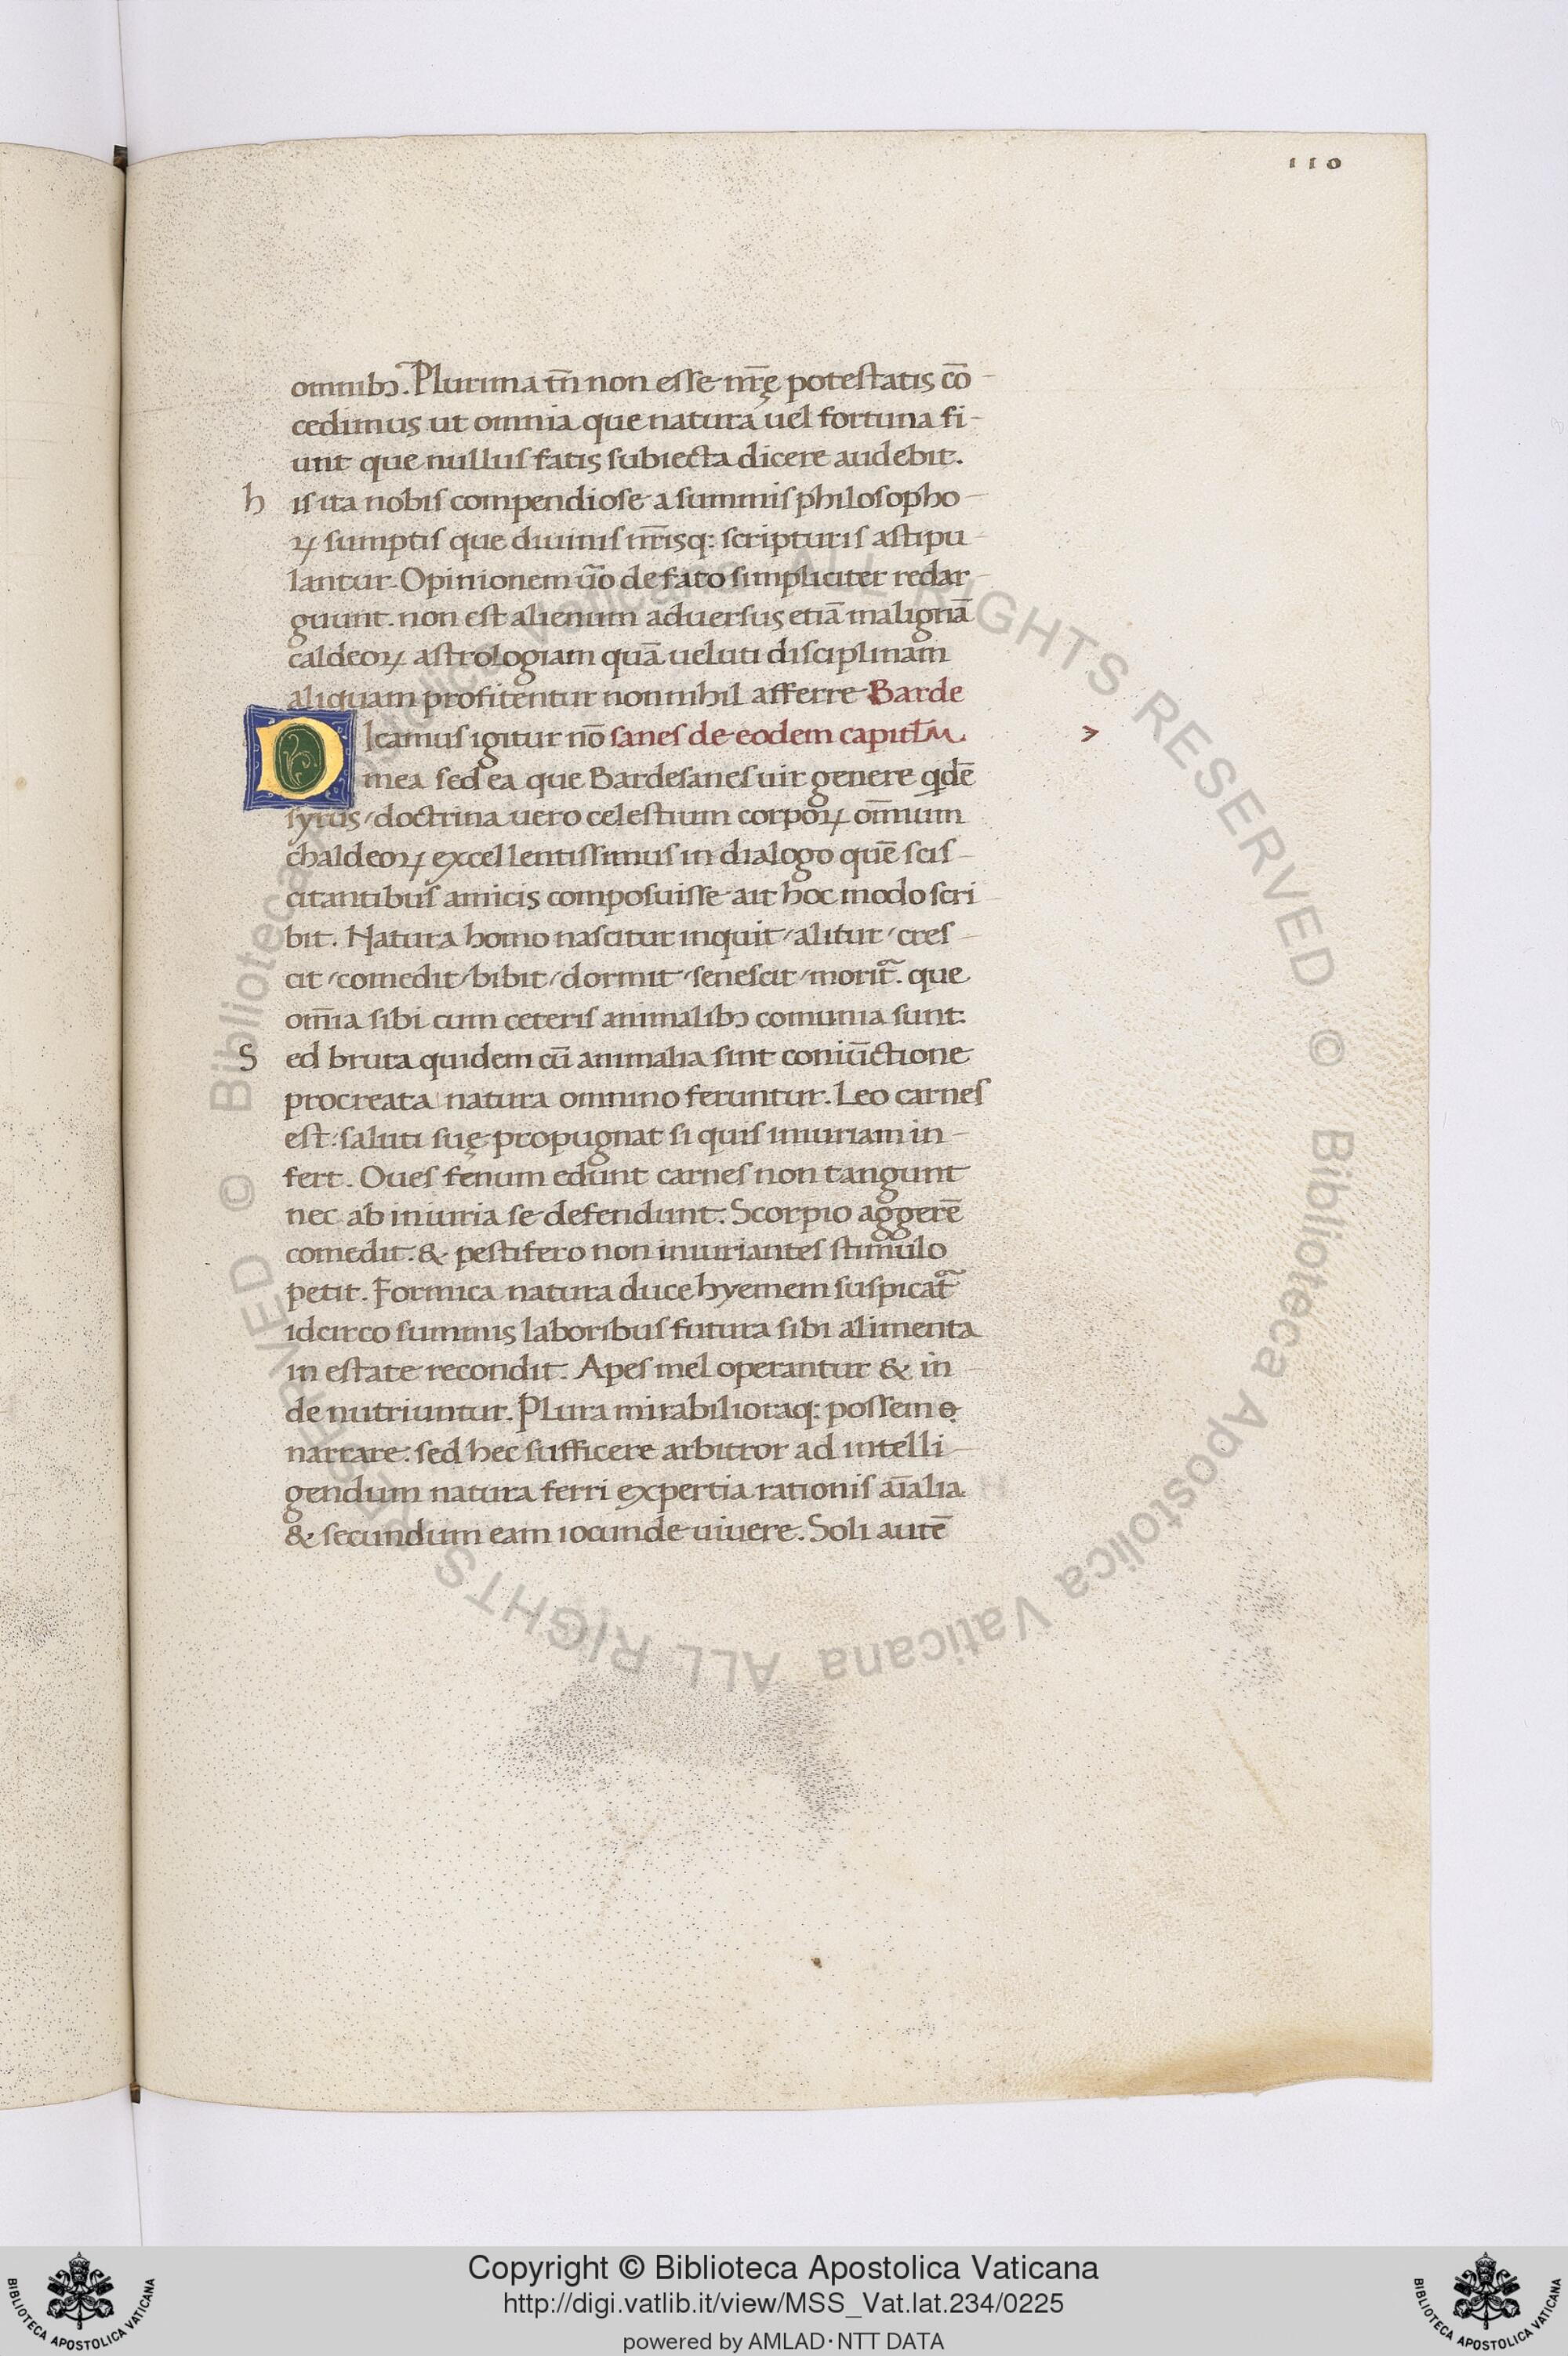 110
omnibꝫ. Plurima tn̄ non esse nr̄ę potestatis cō-
cedimus ut omnia que natura uel fortuna fi-
unt que nullus fatis subiecta dicere audebit.
his ita nobis compendiose a summis philosopho-
ꝝ sumptis que diuinis nr̄isq: scripturis astipu-
lantur. Opinionem ūo de fato simpliciter redar-
guunt. non est alienum aduersus etiā malignā
caldeoꝝ astrologiam quā ueluti disciplinam
aliquam profitentur nonnihil afferre Barde
Dicamus igitur nō sanes de eodem capitl̄m.
mea sed ea que Bardesanes uir genere qdē
syrus/doctrina uero celestium corpoꝝ om̄ium
chaldeoꝝ excellentissimus in dialogo quē scis-
citantibus amicis composuisse ait hoc modo scri
bit. Natura homo nascitur inquit/alitur/cres-
cit/comedit/bibit/dormit/senescit/morit᷑. que
om̄ia sibi cum ceteris animalibꝫ comunia sunt.
Sed bruta quidem cū animalia sint coniūctione
procreata natura omnino feruntur. Leo carnes
est: saluti suę propugnat si quis iniuriam in-
fert. Oues fenum edunt carnes non tangunt
nec ab iniuria se defendunt. Scorpio aggerē
comedit. & pestifero non iniuriantes stimulo
petit. Formica natura duce hyemem suspicat᷑
idcirco summis laboribus futura sibi alimenta
in estate recondit. Apes mel operantur & in-
de nutriuntur. Plura mirabilioraq: possem
narrare: sed hec sufficere arbitror ad intelli-
gendum natura ferri expertia rationis aīalia
& secundum eam iocunde uiuere. Soli autē
© Biblioteca Apostolica Vaticana ALL RIGHTS RESERVED
© Biblioteca Apostolica Vaticana ALL RIGHTS RESERVED
Copyright © Biblioteca Apostolica Vaticana
http://digi.vatlib.it/view/MSS_Vat.lat.234/0225
powered by AMLAD·NTT DATA
BIBLIOTECA APOSTOLICA VATICANA
BIBLIOTECA APOSTOLICA VATICANA